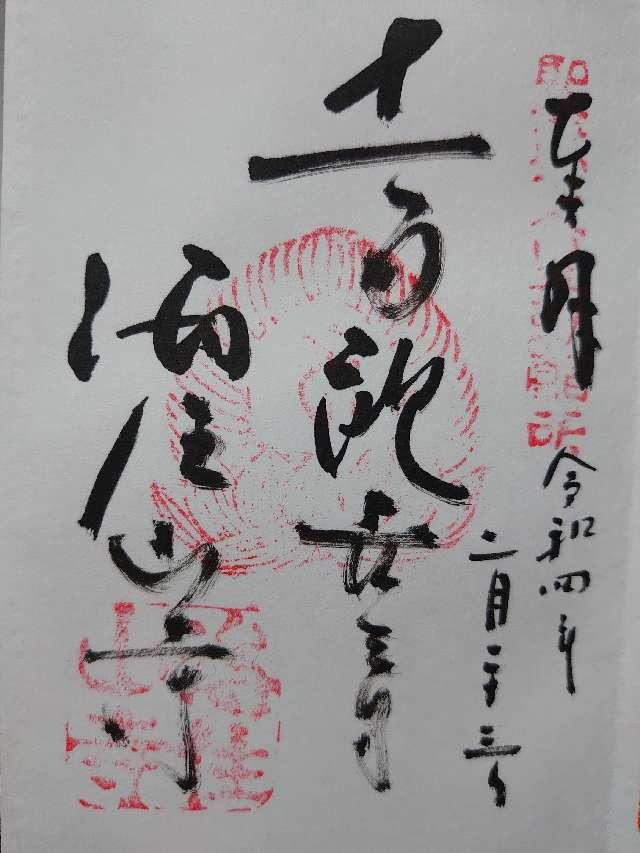 奉拝
令和四年
二月二十三日
十一面観世音
海住山寺
海住山寺